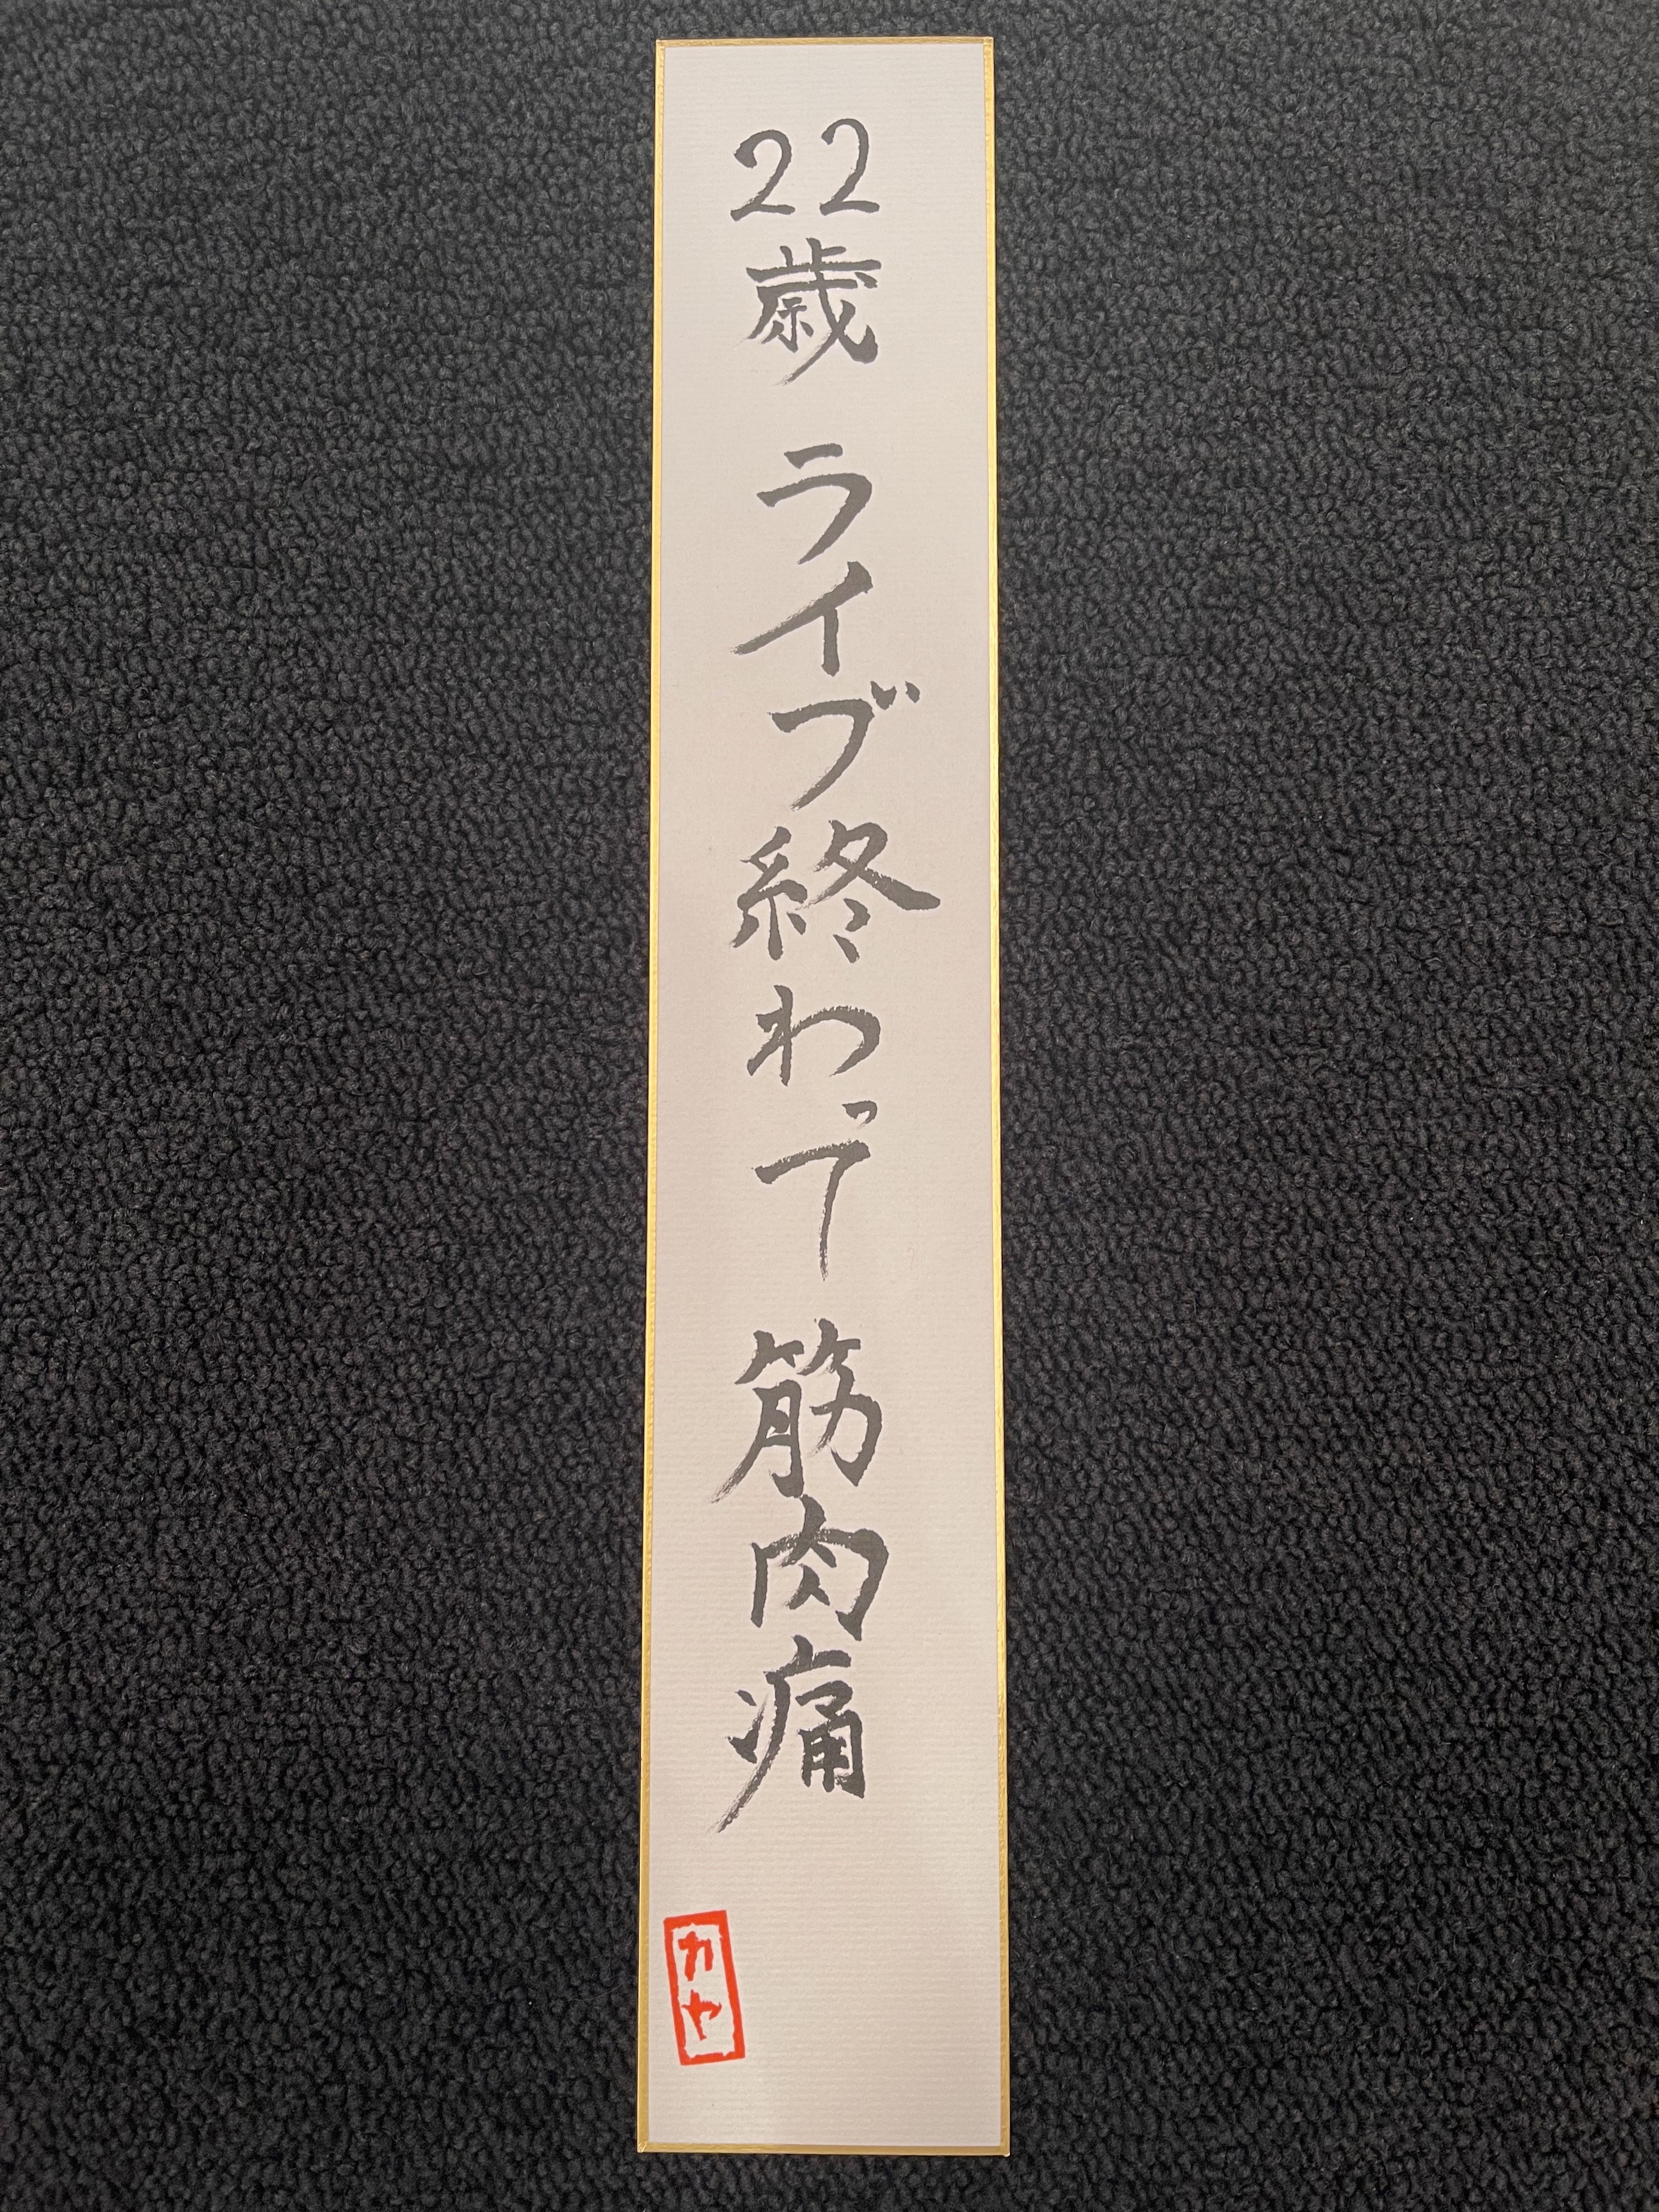 22歳 ライブ終わって 筋肉痛
カヤ